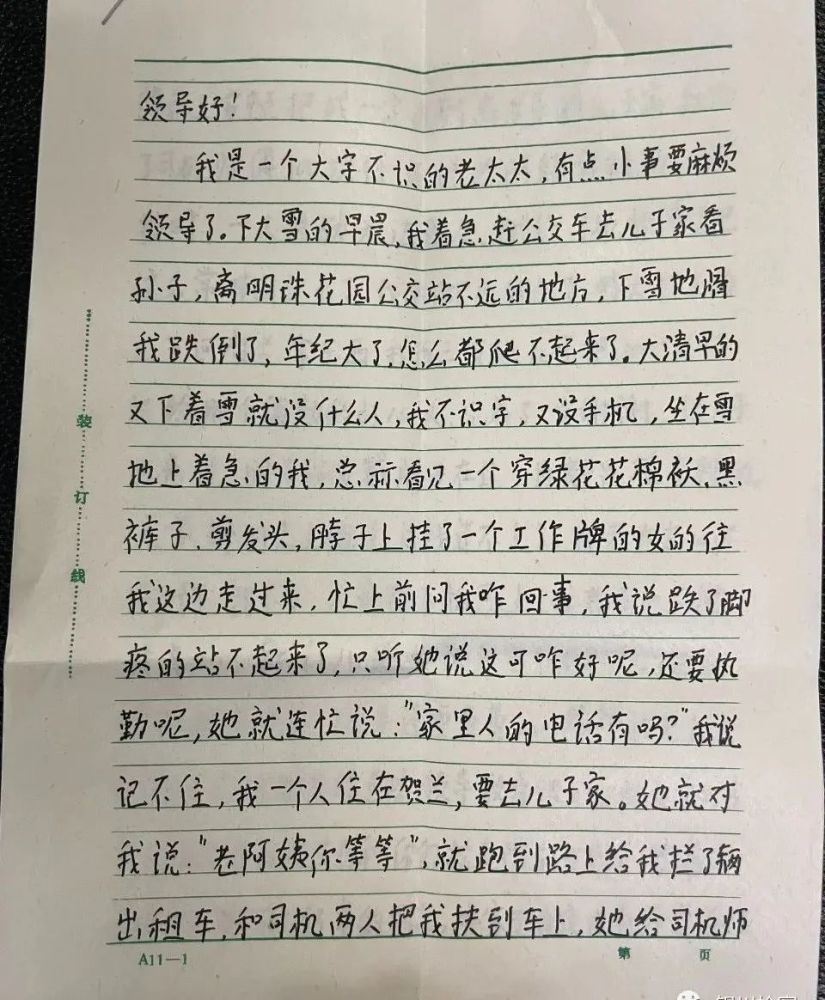 领导好！
我是一个大字不识的老太太，有点小事要麻烦
领导了。下大雪的早晨，我着急赶公交车去儿子家看
孙子，离明珠花园公交站不远的地方，下雪地滑
我跌倒了，年纪大了，怎么都爬不起来了。大清早的
又下着雪就没什么人，我不识字，又没手机，坐在雪
地上着急的我，总标看见一个穿绿花花棉袄、黑
裤子、剪发头，脖子上挂了一个工作牌的女的往
我这边走过来，忙上前问我咋回事，我说跌了脚
疼的站不起来了，只听她说这可咋好呢，还要执
勤呢，她就连忙说："家里人的电话有吗？"我说
记不住，我一个人住在贺兰，要去儿子家。她就对
我说："老阿姨你等等"，就跑到路上给我拦了辆
出租车，和司机两人把我扶到车上，她给司机师
装
订
线
A11—1
第 页